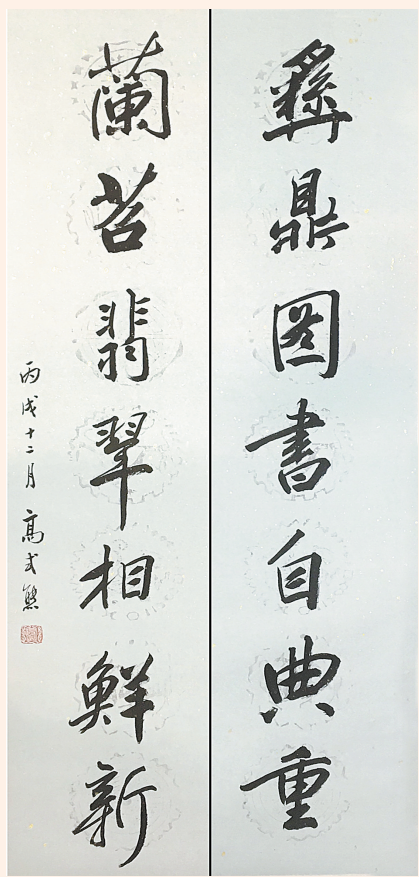 彝鼎图書自典重
蘭苕翡翠相鮮新
丙戌十二月高式熊